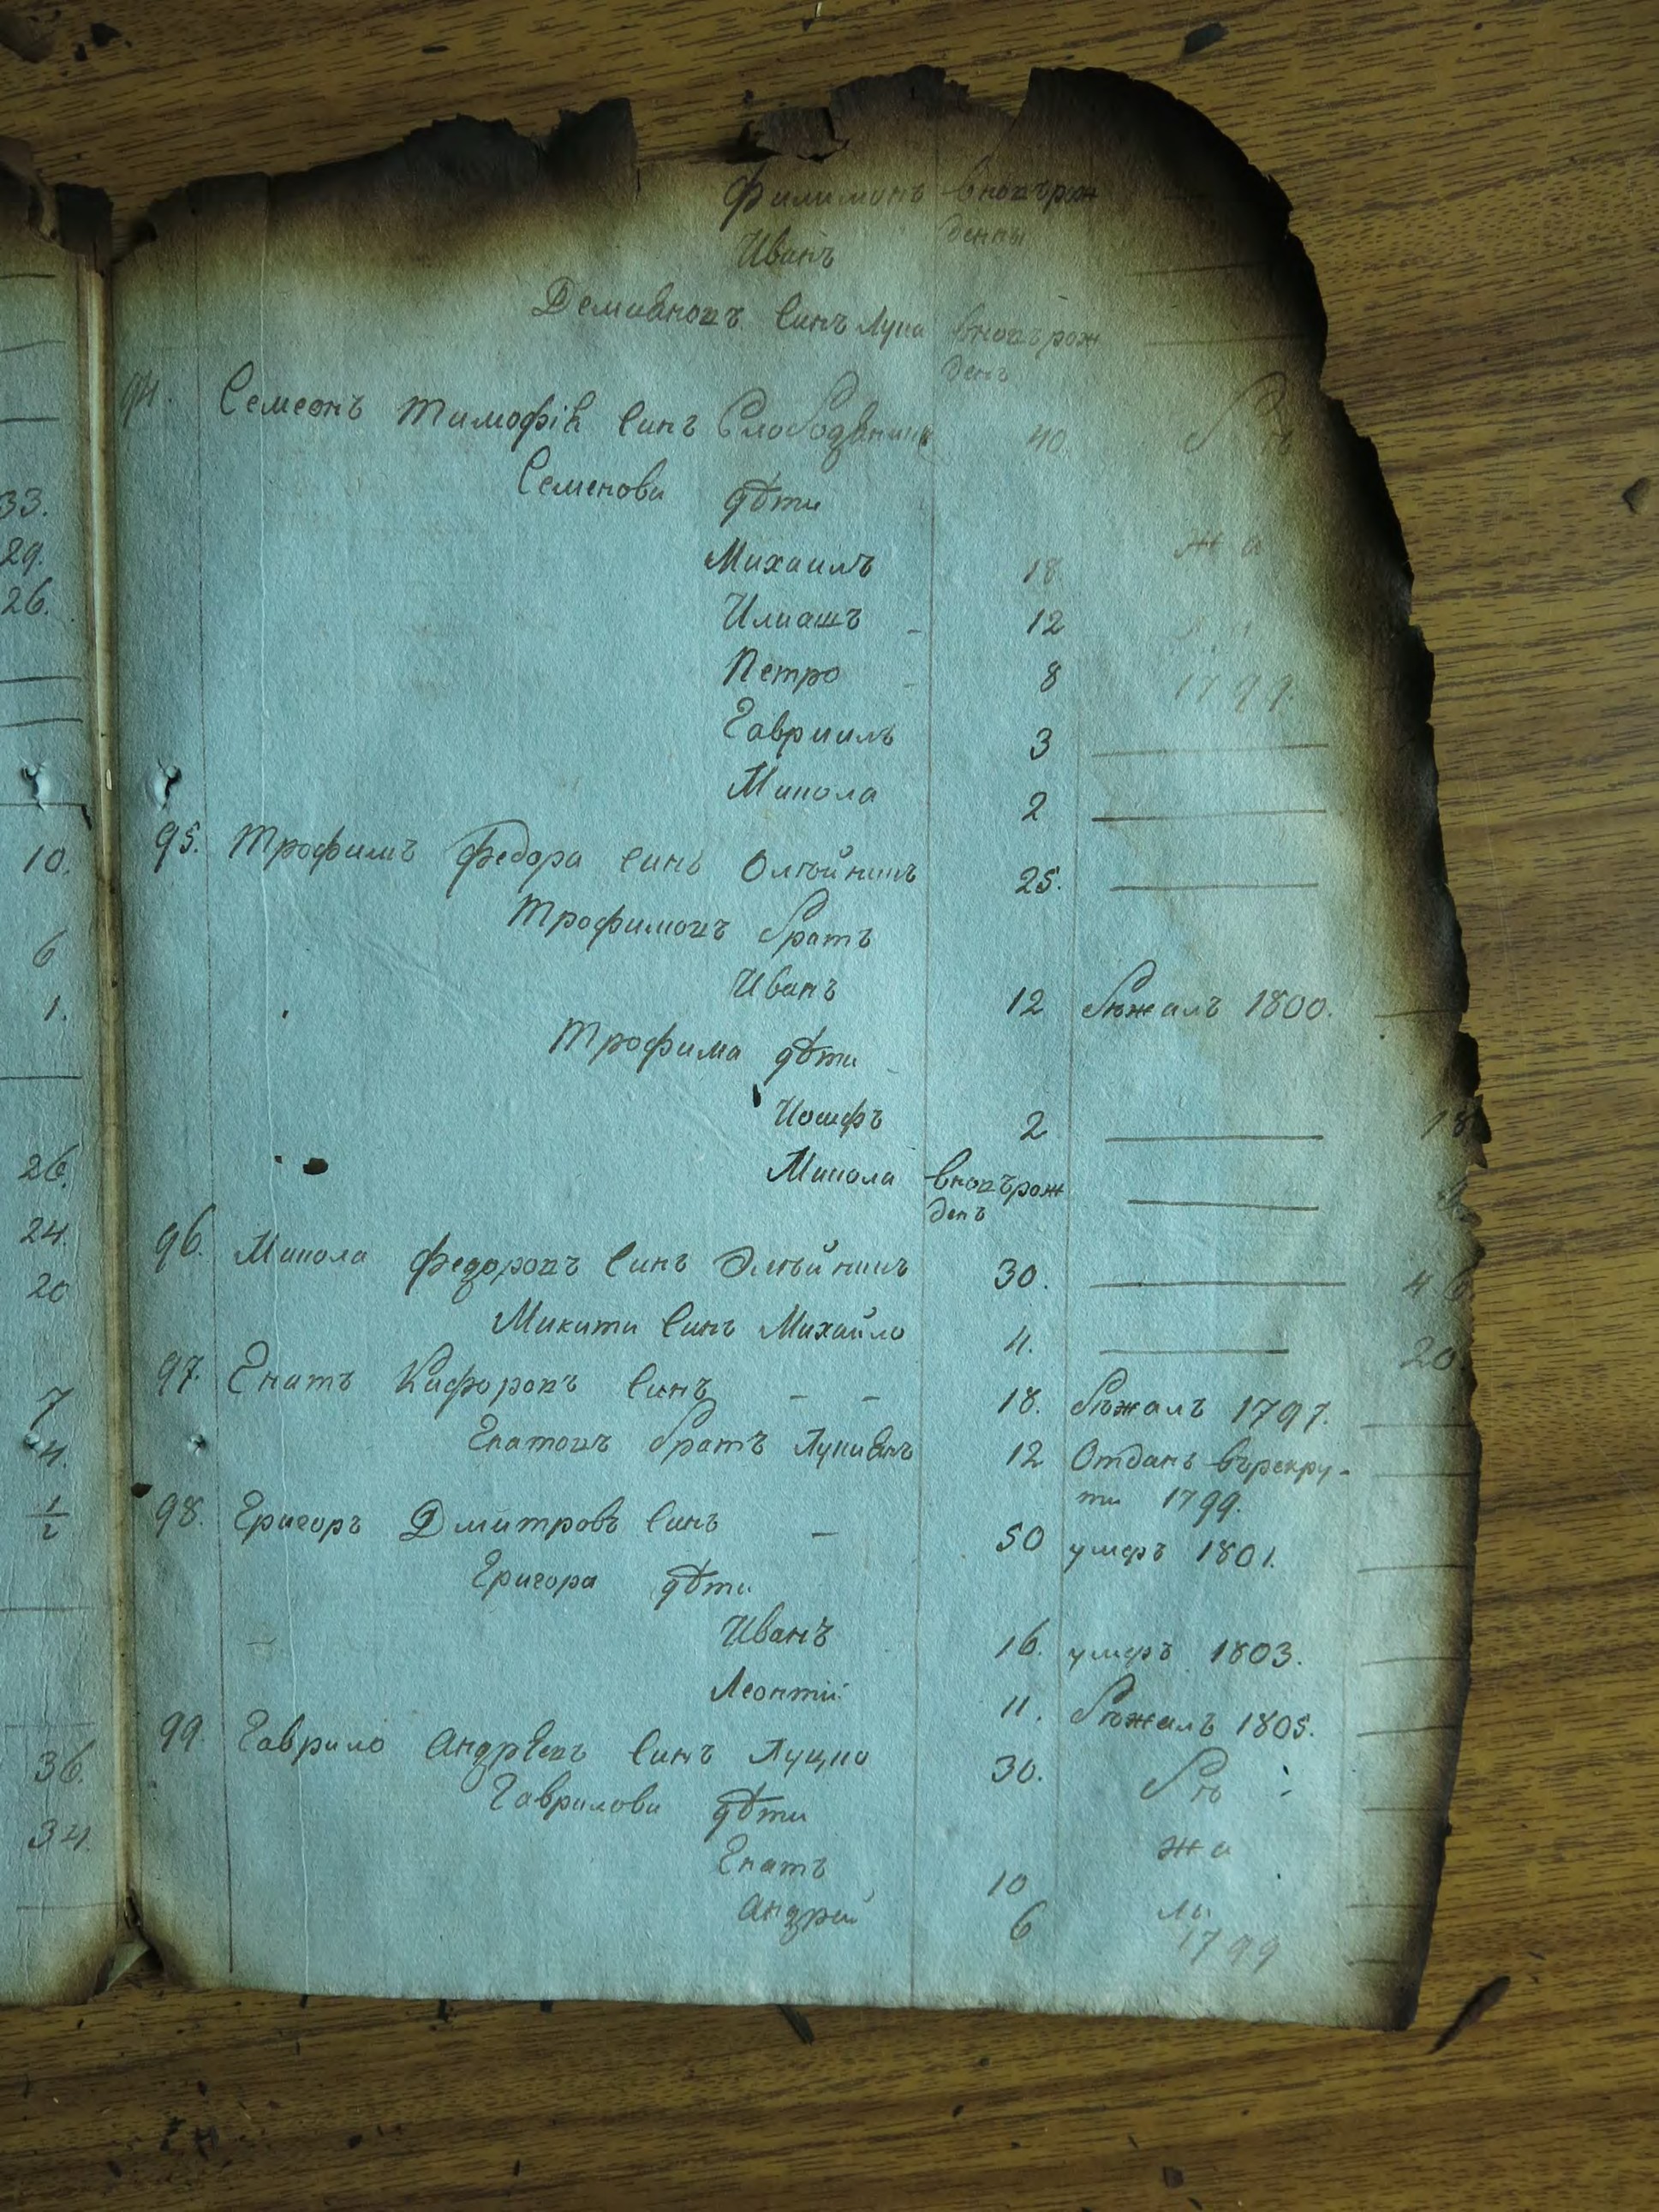 33.
29.
26.
10.
6
1.
26.
24.
20
7
4.
1/2
36.
34.
Филимонъ вновърож
денны
Иванъ
Демиановъ синъ Лука вновърож
денъ
94. Семеонъ Тимофій синъ Слободяникъ 40.
Семенови дѣти
Михаилъ 18
Илиашъ - 12
Петро - 8 1799.
Гавриилъ 3
Микола 2
95. Трофимъ Федора синъ Олѣйникъ 25.
Трофимовъ братъ
Иванъ 12 бѣжалъ 1800.
Трофима дѣти
Иосифъ 2 18
Микола вновърож
денъ
96. Микола Федоровъ синъ Олѣйникъ 30. 46
Микити синъ Михайло 4. 20.
97. Гнатъ Кифоровъ синъ - - 18. бѣжалъ 1797.
Гнатовъ братъ Лукиянъ 12 Отданъ върекру-
ти 1799.
98. Григоръ Дмитровъ синъ - 50 умеръ 1801.
Григора дѣти
Иванъ 16. умеръ 1803.
Леонтій 11. бѣжалъ 1805.
99. Гаврило Андрѣевъ синъ Луцко 30. бѣ
Гаврилови дѣти
жа
Гнатъ 10
Андрей 6 лы
1799